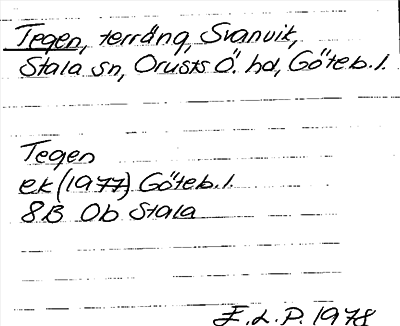 Tegen, terräng, Svanvik,
Stala sn, Orusts Ö. hd, Göteb. l.
Tegen
ek (1977) Göteb. l.
8B Ob Stala
E.L.P. 1978